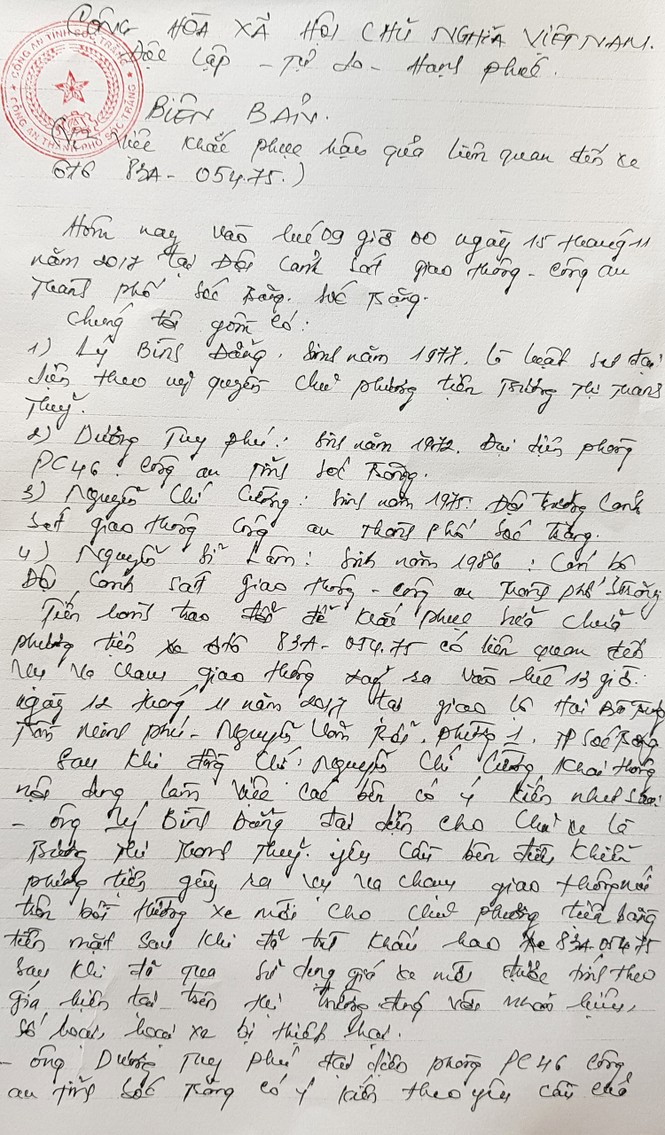 CÔNG HÒA XÃ HỘI CHỦ NGHĨA VIỆT NAM.
Độc Lập - Tự do - Hạnh phúc.
CÔNG AN TỈNH SÓC TRĂNG
CÔNG AN THÀNH PHỐ SÓC TRĂNG
BIÊN BẢN.
(V/v Việc khắc phục hậu quả liên quan đến xe
ôtô 83A - 054.75.)
Hôm nay vào lúc 09 giờ 00 ngày 15 tháng 11
năm 2017 tại Đội Cảnh sát giao thông - Công an
Thành phố Sóc Trăng. Sóc Trăng.
Chúng tôi gồm có:
1) Lý Bình Đẳng. Sinh năm 1977. là luật sư đại
diện theo uỷ quyền chủ phương tiện Trương Thị Thanh
Thuỷ.
2) Dương Tuy phú: Sinh năm 1972. Đại diện phòng
PC46. Công an tỉnh Sóc Trăng.
3) Nguyễn Chí Cường: Sinh năm 1975. Đội trưởng Cảnh
sát giao thông Công an Thành phố Sóc Trăng.
4) Nguyễn Sĩ Lâm: Sinh năm 1986: Cán bộ
Đội Cảnh sát giao thông - Công an Thành phố STrăng
Tiến hành trao đổi để khắc phục sửa chữa
phương tiện xe ôtô 83A - 054.75 có liên quan đến
vụ va chạm giao thông xảy ra vào lúc 13 giờ.
ngày 12 tháng 11 năm 2017 tại giao lộ Hai Bà Trưng
Trần Minh phú - Nguyễn Văn, phường 1, TP Sóc Trăng
Sau khi đồng chí: Nguyễn Chí Cường khai thông
nội dung làm việc các bên có ý kiến như sau:
- Ông Lý Bình Đẳng đại diện cho chủ xe là
Trương Thị Thanh Thuỷ. yêu cầu bên điều khiển
phương tiện gây ra vụ va chạm giao thông nói
trên bồi thường xe mới cho chủ phương tiện bằng
tiền mặt sau khi đã trừ khấu hao xe 83A-054.75
sau khi đã qua sử dụng giá xe mới được tính theo
giá hiện tại trên thị trường đúng với nhãn hiệu,
số loại, loại xe bị thiệt hại.
- Ông Dương Tuy phú đại diện phòng PC46 Công
an tỉnh Sóc Trăng có ý kiến theo yêu cầu chủ